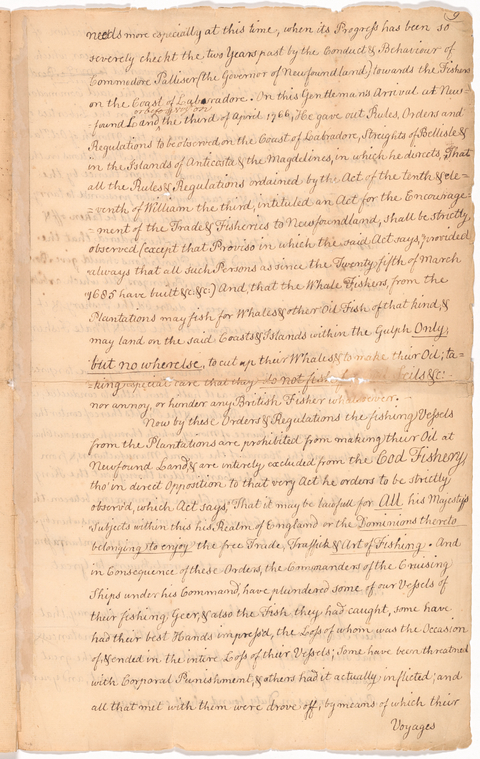 9
needs more especially at this time, when its Progress has been so
severely checkt the two Years past by the Conduct & Behaviour of
Commodore Palliser (the Governor of Newfoundland) towards the Fishers
on the Coast of Labradore. On this Gentleman's Arrival at New-
found Land the third of April 1766, He gave out Rules, Orders and
Regulations to be observed on the Coast of Labradore, Streights of Bellisle &
in the Islands of Anticosta & the Magdelines, in which he directs, "That
all the Rules & Regulations ordained by the Act of the tenth & ele=
=venth of William the third, intituled an Act for the Encourage=
=ment of the Trade & Fisheries to Newfoundland, shall be strictly
observed (except that Proviso in which the said Act says, "provided
always that all such Persons as since the Twenty fifth of March
1685 have built &c &c:) And, that the Whale Fishers, from the
Plantations may fish for Whales & other Oil Fish of that kind, &
may land on the said Coasts & Islands within the Gulph Only,
but no where else, to cut up their Whales & to make their Oil; ta-
-king special care that they do not fish &c:-
nor annoy, or hinder any British Fisher whatsoever.-
Now by these Orders & Regulations the fishing Vessels
from the Plantations are prohibited from making their Oil at
Newfound Land, & are intirely excluded from the Cod Fishery,
tho' in direct Opposition to that very Act he orders to be strictly
observ'd, which Act says, "That it may be lawfull for All his Majestys
Subjects within this his Realm of England or the Dominions thereto
belonging to enjoy the free Trade, Traffick & Art of Fishing. And
in Consequence of these Orders, the Commanders of the Cruising
Ships under his Command, have plundered some of our Vessels of
their fishing Geer, & also the Fish they had caught, some have
had their best Hands impress'd, the Loss of whom was the Occasion
of, & ended in the intire Loss of their Vessels; Some have been threatned
with Corporal Punishment, & others had it actually inflicted; and
all that met with them were drove off, by means of which their
Voyages